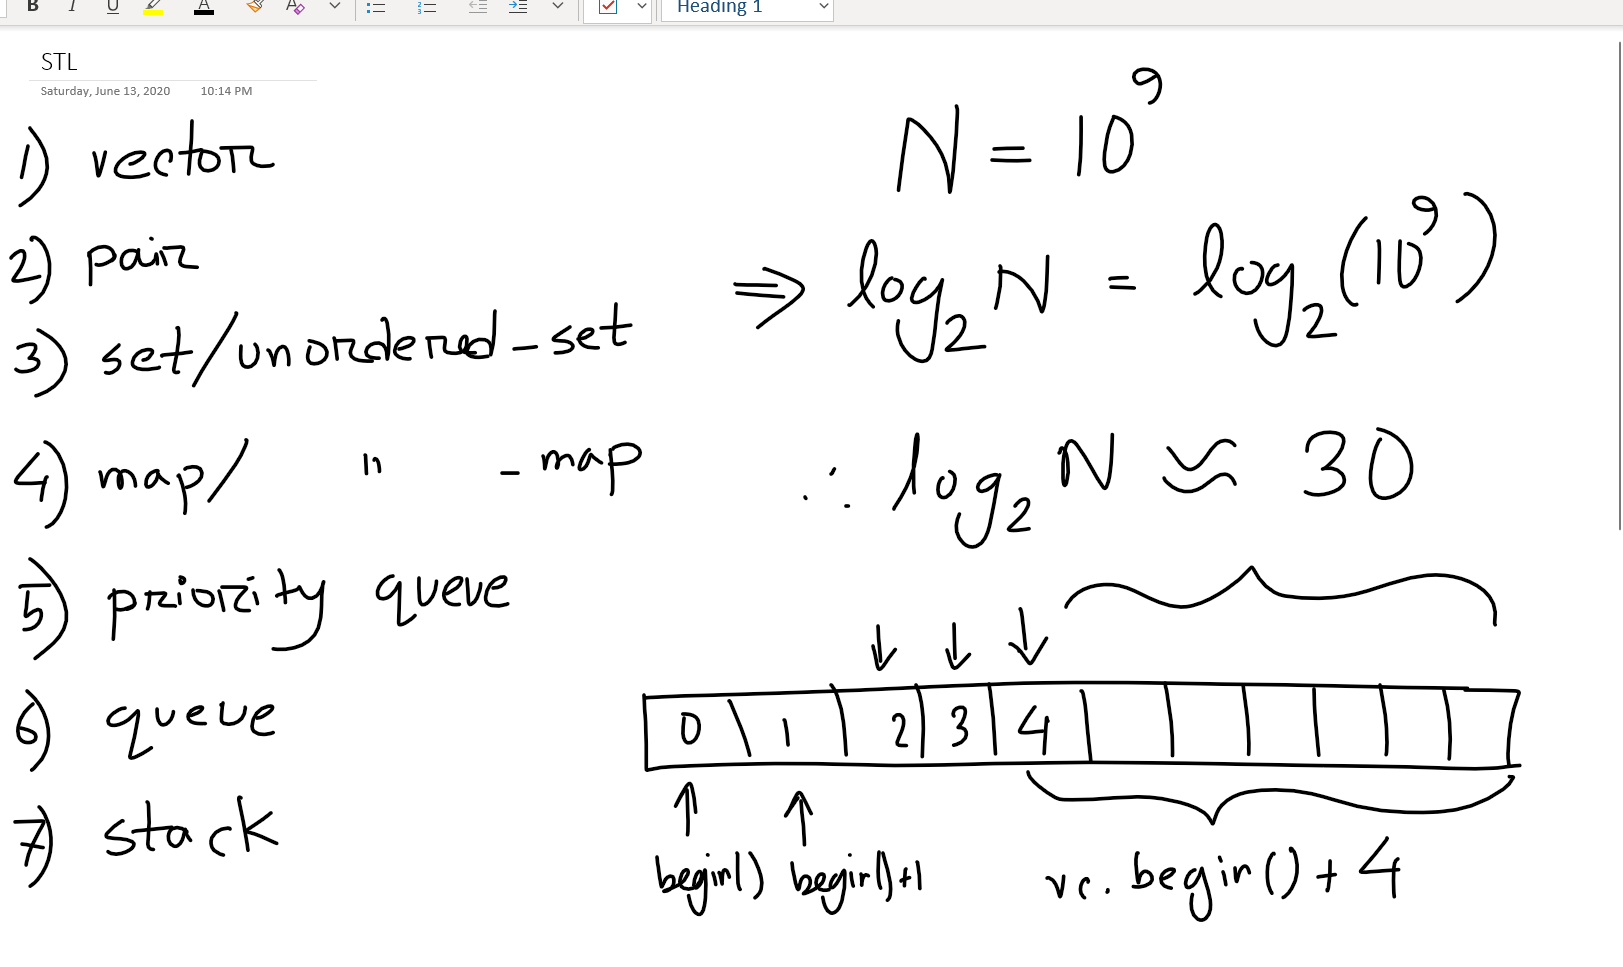 B I U A A Heading 1
STL
Saturday, June 13, 2020 10:14 PM
1) vector
2) pair
3) set/unordered_set
4) map/ " _map
5) priority queue
6) queue
7) stack
N = 10⁹
⇒ log₂ N = log₂ (10⁹)
∴ log₂ N ≈ 30
0 1 2 3 4
begin() begin()+1 vc. begin() + 4